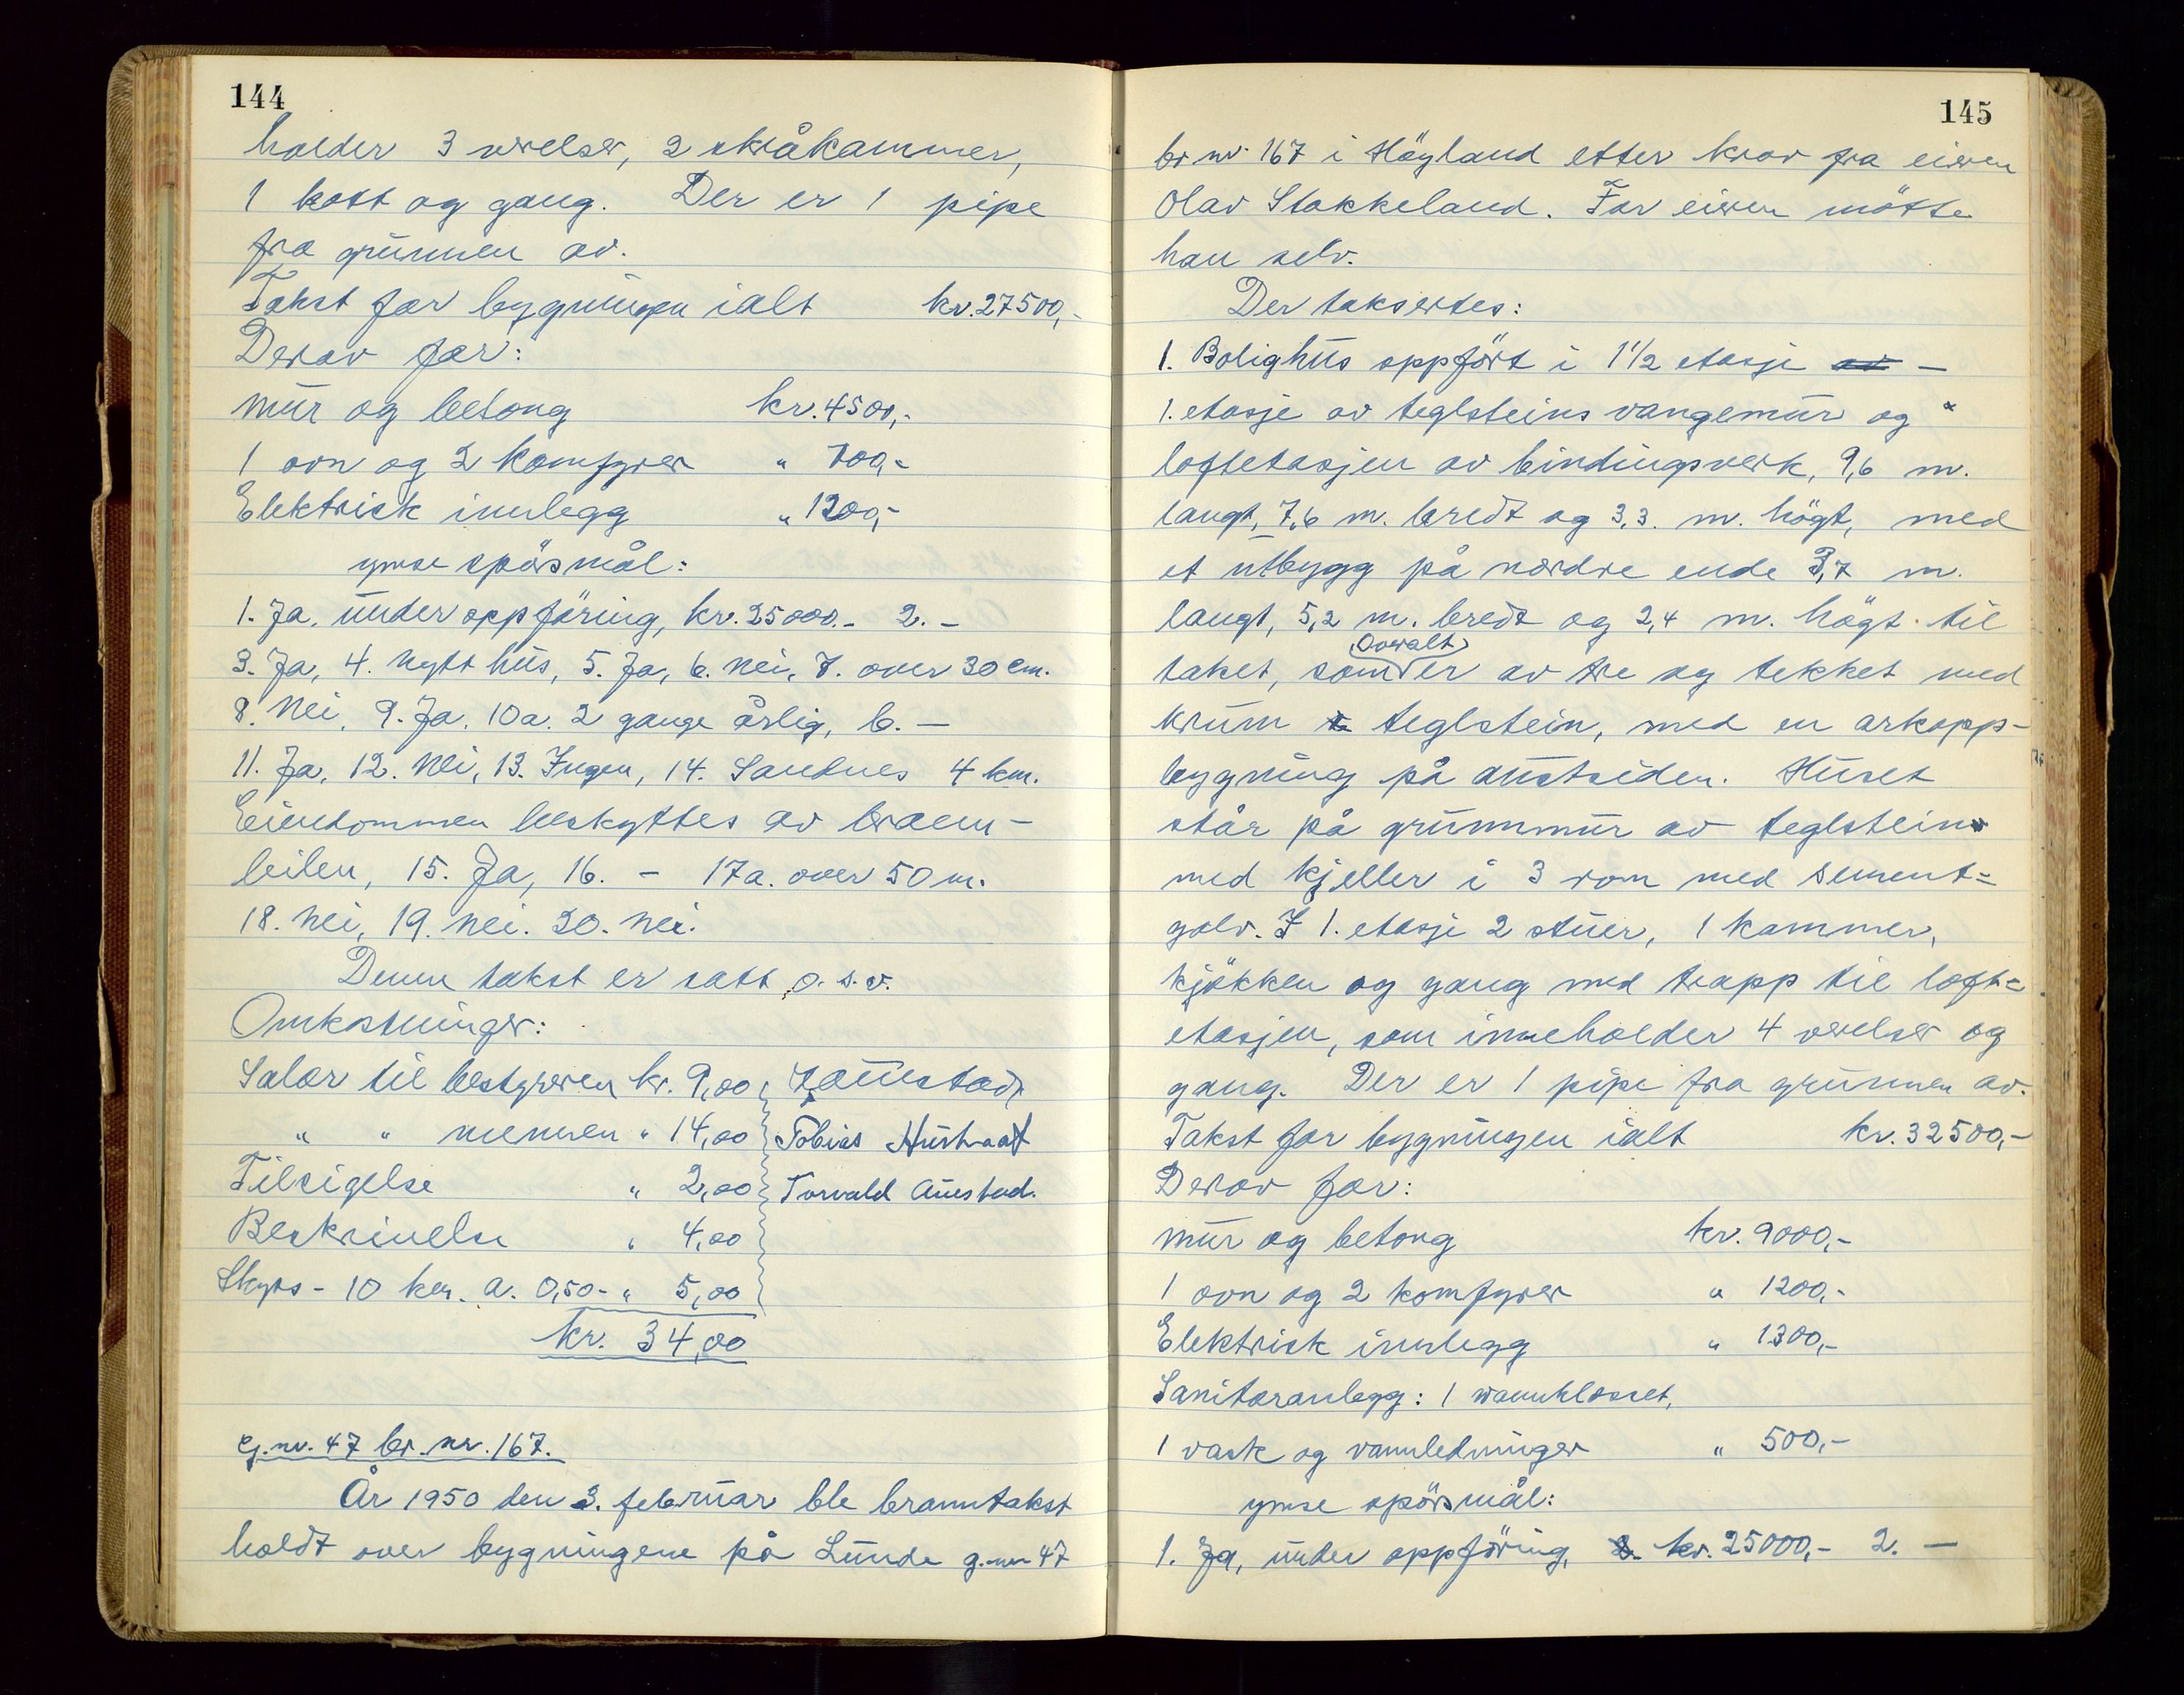 144
holder 3 verelser, 2 skråkammer,
1 kott og gang. Der er 1 pipe
fra grunnen av.
Takst for bygningen ialt kr. 27500,-
Derav for:
mur og betong kr. 4500,-
1 ovn og 2 komfyrer " 700,-
Elektrisk innlegg " 1200,-
ymse spörsmål:
1. Ja, under oppföring, kr. 25000.- 2. -
3. Ja, 4. nytt hus, 5. Ja, 6. nei, 7. over 30 cm.
8. Nei, 9. Ja. 10a. 2 gange årlig, b. -
11. Ja, 12. Nei, 13. Ingen, 14. Sandnes 4 km.
Eiendommen beskyttes av brann-
bilen, 15. Ja, 16. - 17a. over 50 m.
18. nei, 19. nei. 20. nei.
Denne takst er satt o.s.v.
Omkostninger:
Salær til bestyreren kr. 9,00
" " mennen " 14,00 Tobias Hustvedt
Tilsigelse " 2,00 Torvald Austad.
Beskrivelse " 4,00
Skyss - 10 km. a. 0,50 - " 5,00
kr. 34,00
G.nr. 47 br. nr. 167.
År 1950 den 3. februar ble branntakst
holdt over bygningene på Lunde g.nr 47
145
br nr. 167 i Höyland etter krav fra eieren
Olav Stokkeland. For eieren mötte
han selv.
Der taksertes:
1. Bolighus oppfört i 1 1/2 etasje av -
1. etasje av teglsteins vangemur og
loftetasjen av bindingsverk, 9,6 m.
langt, 7,6 m. bredt og 3,3. m. högt, med
et utbygg på nordre ende 3,7 m.
langt, 5,2 m. bredt og 2,4 m. högt til
taket, som overalt er av tre og tekket med
krum teglstein, med en arkopp-
bygning på austsiden. Huset
står på grunnmur av teglstein
med kjeller i 3 rom med sement=
golv. I 1. etasje 2 stuer, 1 kammer,
kjökken og gang med trapp til loft=
etasjen, som inneholder 4 verelser og
gang. Der er 1 pipe fra grunnen av.
Takst for bygningen ialt kr. 32500,-
Derav for:
mur og betong kr. 9000,-
1 ovn og 2 komfyrer " 1200,-
Elektrisk innlegg " 1300,-
Sanitæranlegg: 1 vannklosset,
1 vask og vannledninger " 500,-
ymse spörsmål:
1. Ja, under oppföring, kr. 25000,- 2. -